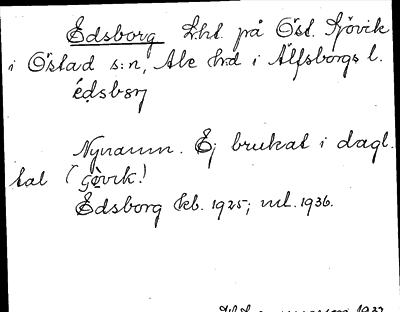 Edsborg Lht. på Öst. Sjövik
i Östad s:n, Ale hd i Älfsborgs l.
édsbɔrj
Nynamn. Ej brukat i dagl.
tal (Sjövik!)
Edsborg kb. 1925; ml. 1936.